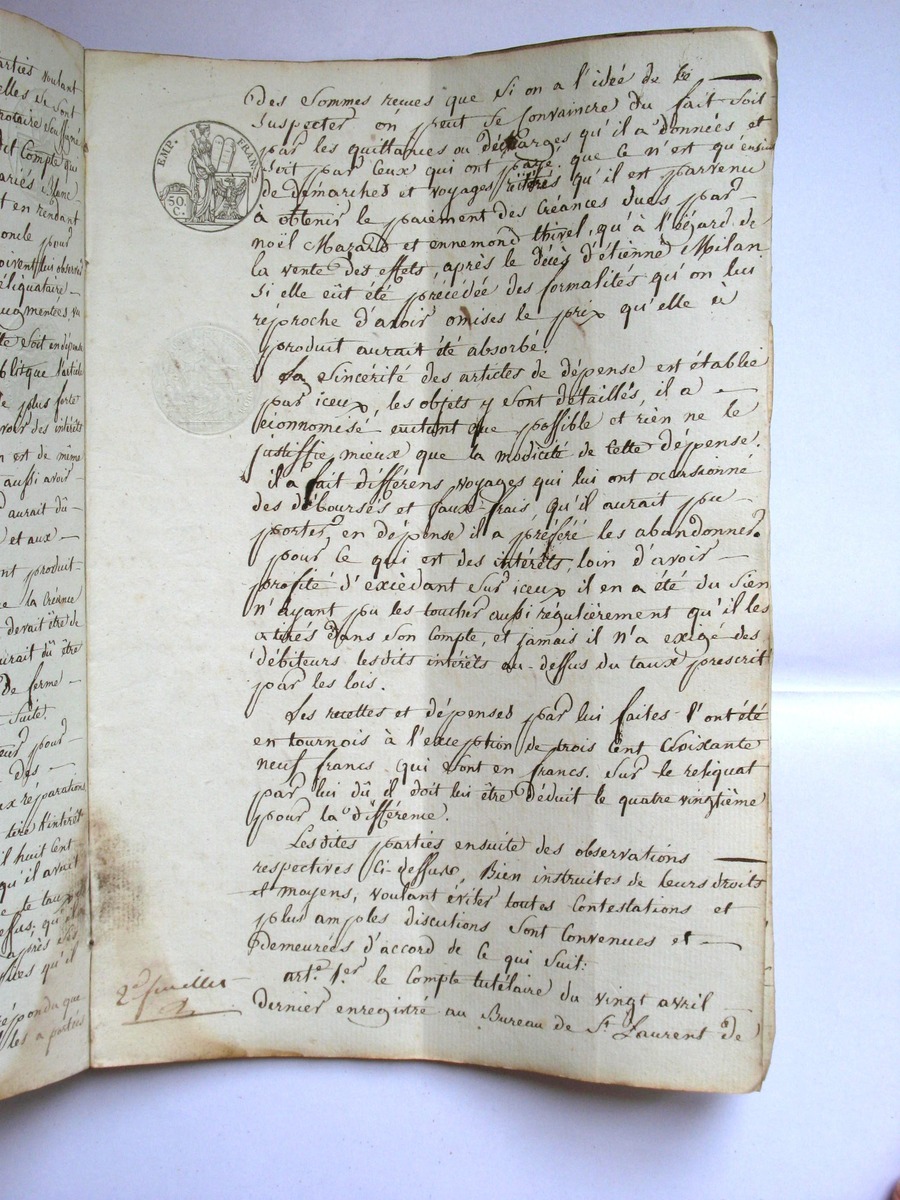 arties voulant
elles se sont
notaire soussigné
dit Compte que
mariés Blanc
et en rendant
oncle pour
doivent lui observer
éliquataire
augmentées vu
te soit en dépense
plus forte
voir des intérêts
n est de même
aussi avoir
aurait dû
et aux
ont produit
la Créance
devait être de
aurait dû être
de ferme
suite.
pour
des
ux réparations
tire d'intérêt
il huit Cent
qu'il avait
le taux
après ses
ues qu'il
répondu que
les a portés
EMP. FRANC.
50. C.
Des Sommes recues que Si on a l'idée de le
Suspecter on peut se Convaincre du fait soit
par les quittances ou décharges qu'il a données, et
Soit par Ceux qui ont payé, que Ce n'est qu'ensuite
de démarches et voyages réitérés qu'il est parvenu
à obtenir le paiement des Créances dues par
noël Mazard et ennemond thivel, qu'à l'égard de
la vente des effets, après le décès d'étienne Milan
Si elle eût été précédée des formalités qu'on lui
reproche d'avoir omises le prix qu'elle à
produit aurait été absorbé.
La Sincérité des articles de dépense est établie
par iceux, les objets y sont détaillés, il a
éconnomisé autant que possible et rien ne le
justiffie mieux que la modicité de Cette dépense.
il a fait différens voyages qui lui ont occasionné
des déboursés et faux-frais, qu'il aurait pu
porter en dépense il a préféré les abandonner.
pour ce qui est des intérêts, loin d'avoir
profité d'excèdant sur iceux il en a été du Sien
n'ayant pu les toucher aussi régulièrement qu'il les
a tirés dans Son Compte, et jamais il n'a exigé des
débiteurs lesdits intérêts au-dessus du taux prescrit
par les lois.
Les recettes et dépenses par lui faites l'ont été
en tournois à l'exception de trois Cent Soixante
neuf francs qui Sont en francs. Sur le reliquat
par lui dû il doit lui être déduit le quatre vingtième
pour la différence.
Lesdites parties ensuite des observations
respectives Ci-dessus, Bien instruites de leurs droits
et moyens, voulant éviter toutes Contestations et
plus amples discutions Sont Convenues et
Demeurées d'accord de ce qui Suit:
art.e 1.er le Compte tutélaire du vingt avril
dernier enregistré au Bureau de St. Laurent de
2.e feuillet